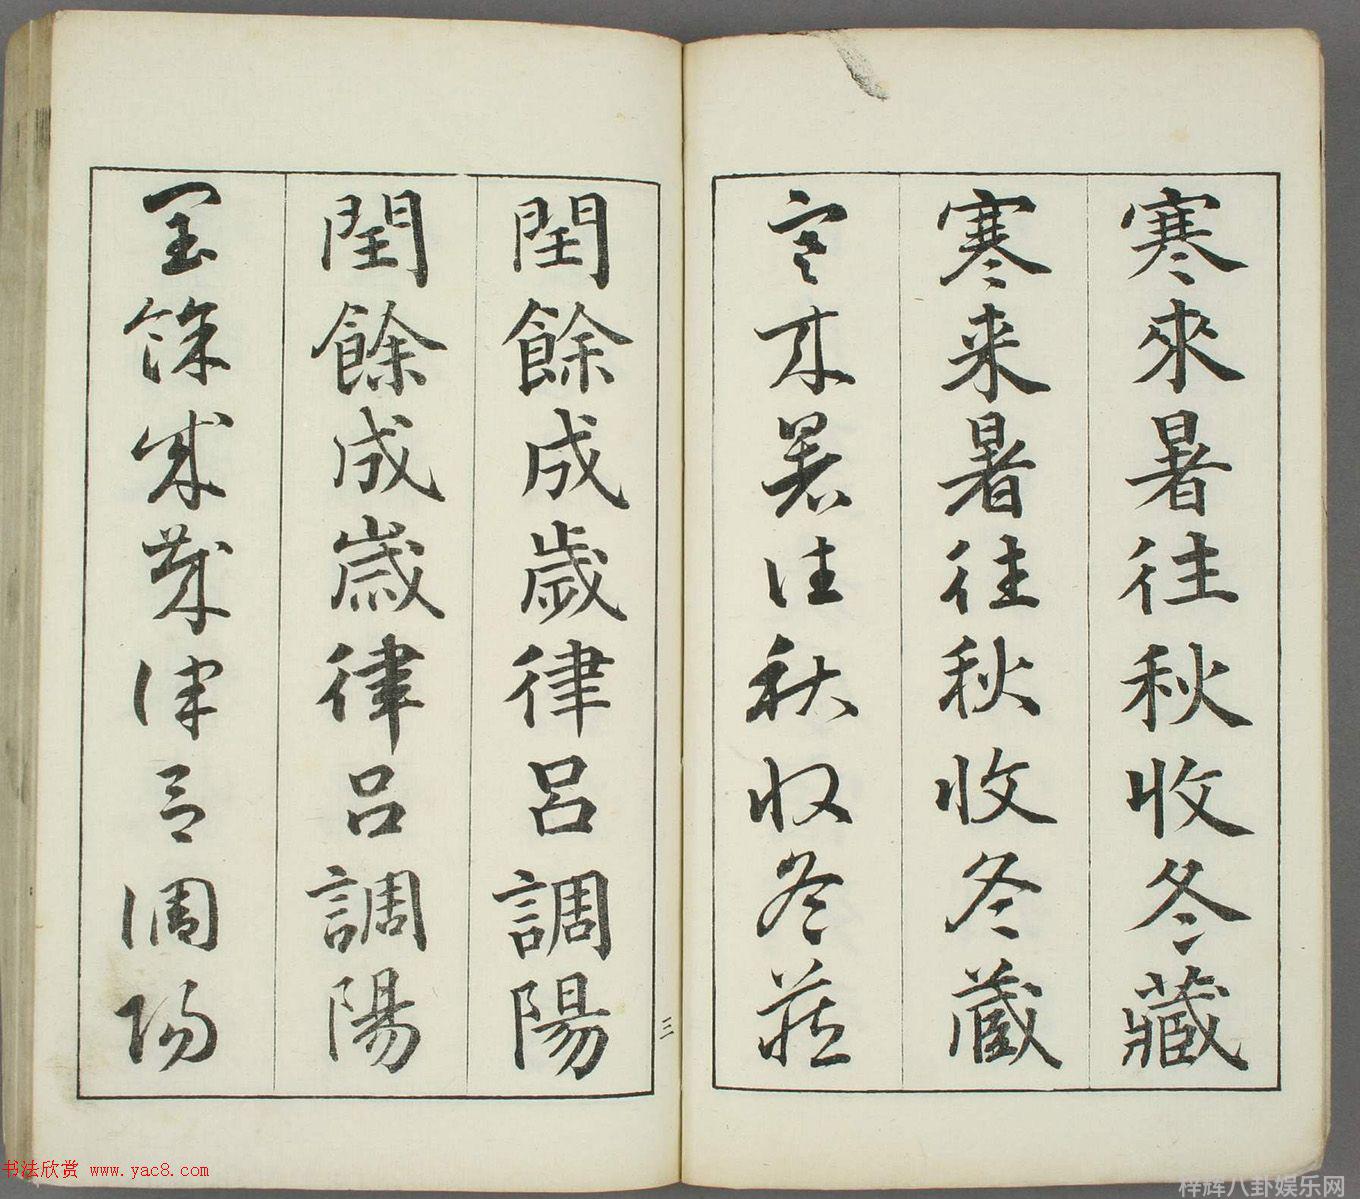 寒來暑往秋收冬藏
寒来暑往秋收冬蔵
寒来暑往秋收冬藏
閏餘成歲律呂調陽
閏餘成歳律呂調陽
閏餘成歲律呂調陽
三
书法欣赏 www.yac8.com
梓辉八卦娱乐网